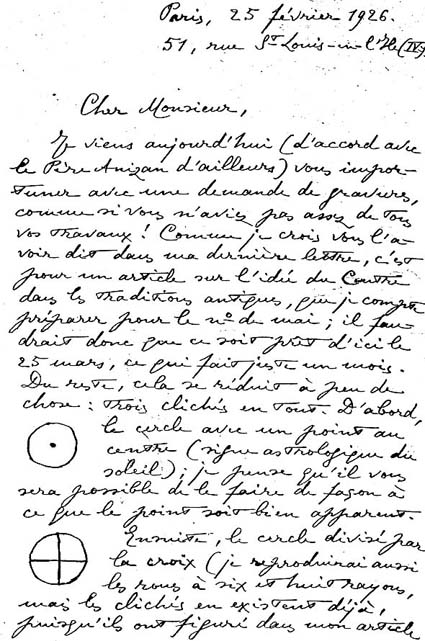 Paris, 25 février 1926.
51, rue St Louis-en-l'Ile (IVe)
Cher Monsieur,
Je viens aujourd'hui (d'accord avec
le Père Anizan d'ailleurs) vous impor-
tuner avec une demande de gravures,
comme si vous n'aviez pas assez de tous
vos travaux ! Comme je crois vous l'a-
voir dit dans ma dernière lettre, c'est
pour un article sur l'idée du Centre
dans les traditions antiques, que je compte
préparer pour le no de mai ; il fau-
drait donc que ce soit prêt d'ici le
25 mars, ce qui fait juste un mois.
Du reste, cela se réduit à peu de
chose : trois clichés en tout. D'abord,
le cercle avec un point au
centre (signe astrologique du
soleil) ; je pense qu'il vous
sera possible de le faire de façon à
ce que le point soit bien apparent.
Ensuite, le cercle divisé par
la croix (je reproduirai aussi
les roues à six et huit rayons,
mais les clichés en existent déjà,
puisqu'ils ont figuré dans mon article